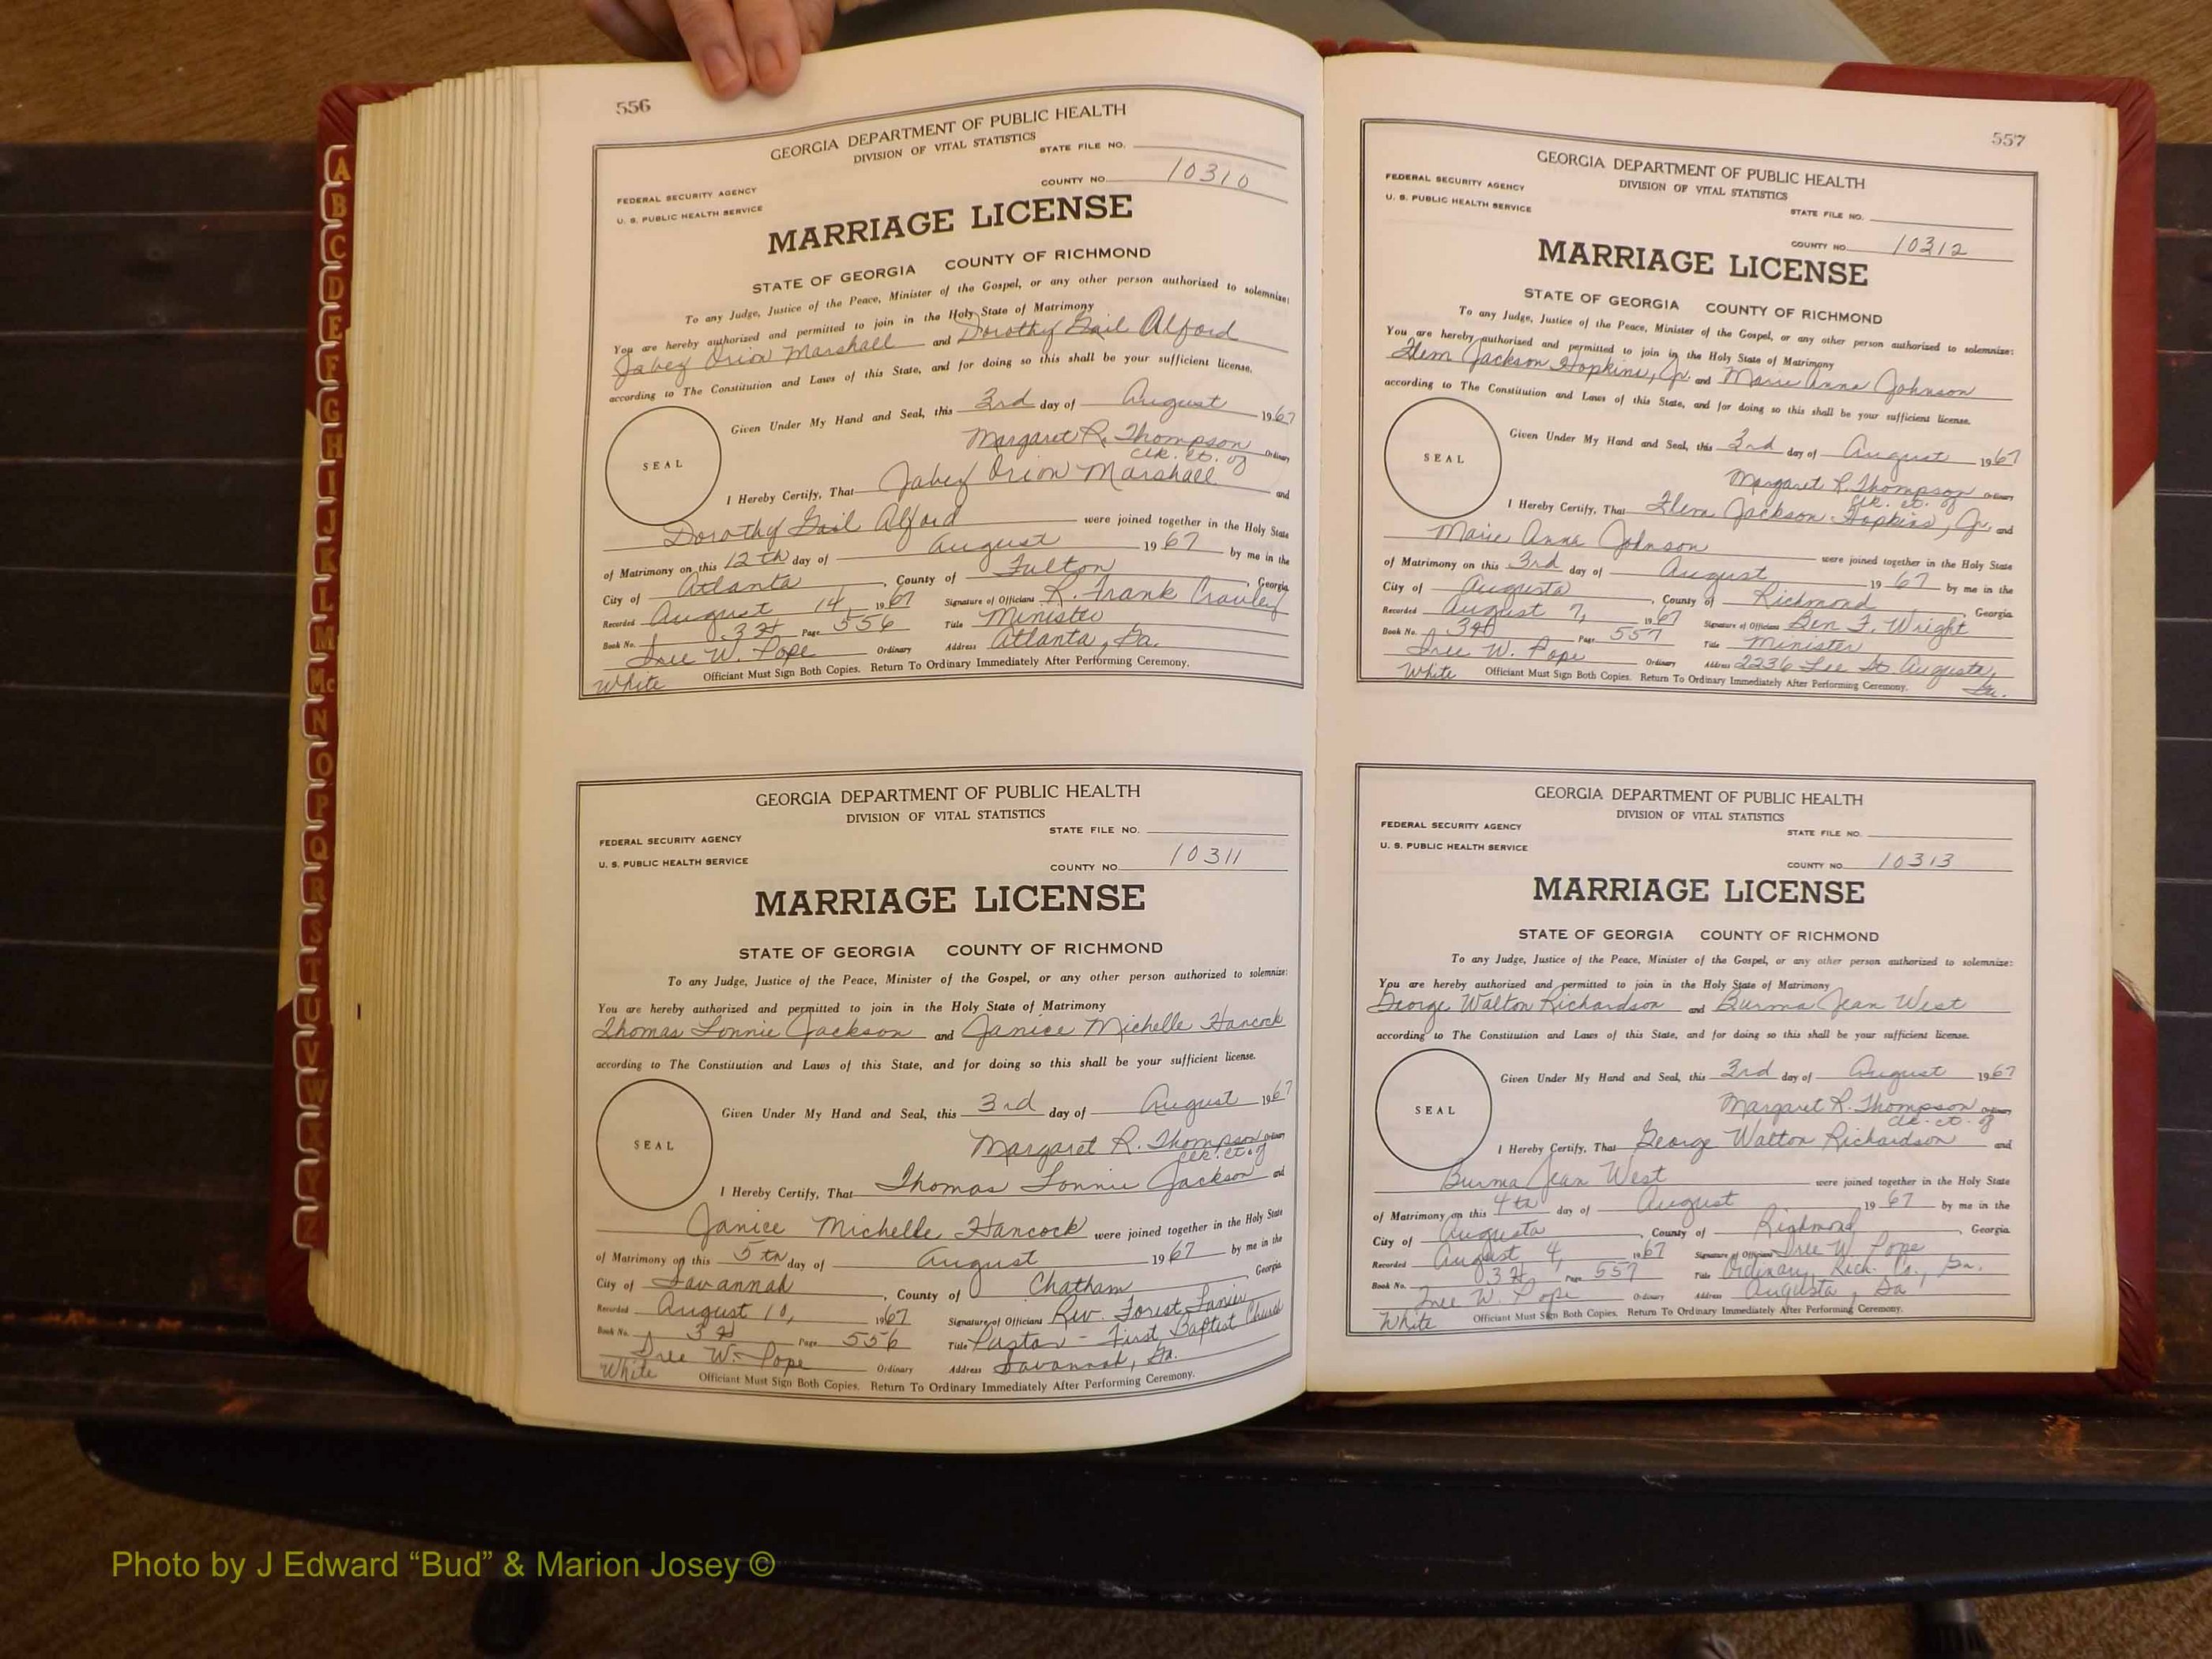 556
GEORGIA DEPARTMENT OF PUBLIC HEALTH
DIVISION OF VITAL STATISTICS
STATE FILE NO.
FEDERAL SECURITY AGENCY
COUNTY NO. 10310
U. S. PUBLIC HEALTH SERVICE
MARRIAGE LICENSE
STATE OF GEORGIA COUNTY OF RICHMOND
To any Judge, Justice of the Peace, Minister of the Gospel, or any other person authorized to solemnize:
You are hereby authorized and permitted to join in the Holy State of Matrimony
Jabez Orion Marshall and Dorothy Gail Alford
according to The Constitution and Laws of this State, and for doing so this shall be your sufficient license.
Given Under My Hand and Seal, this 3rd day of August 1967
SEAL
Margaret R. Thompson Ordinary
Clk. Ct. of
I Hereby Certify, That Jabez Orion Marshall and
Dorothy Gail Alford were joined together in the Holy State
of Matrimony on this 12th day of August 1967 by me in the
City of Atlanta, County of Fulton, Georgia
Recorded August 14, 1967 Signature of Officiant R. Frank Crawley
Book No. Page 556 Title Minister
W. Pope Ordinary Address Atlanta, Ga.
White Officiant Must Sign Both Copies. Return To Ordinary Immediately After Performing Ceremony.
GEORGIA DEPARTMENT OF PUBLIC HEALTH
DIVISION OF VITAL STATISTICS
STATE FILE NO.
FEDERAL SECURITY AGENCY
U. S. PUBLIC HEALTH SERVICE
COUNTY NO. 10311
MARRIAGE LICENSE
STATE OF GEORGIA COUNTY OF RICHMOND
To any Judge, Justice of the Peace, Minister of the Gospel, or any other person authorized to solemnize:
You are hereby authorized and permitted to join in the Holy State of Matrimony
Thomas Lonnie Jackson and Janice Michelle Hancock
according to The Constitution and Laws of this State, and for doing so this shall be your sufficient license.
Given Under My Hand and Seal, this 3rd day of August 1967
SEAL
Margaret R. Thompson Ordinary
Clk. Ct. of
I Hereby Certify, That Thomas Lonnie Jackson and
Janice Michelle Hancock were joined together in the Holy State
of Matrimony on this 5th day of August 1967 by me in the
City of Savannah, County of Chatham, Georgia
Recorded August 10, 1967 Signature of Officiant Rev. Forest Lanier
Book No. Page 556 Title Pastor - First Baptist Church
W. Pope Ordinary Address Savannah, Ga.
White Officiant Must Sign Both Copies. Return To Ordinary Immediately After Performing Ceremony.
557
GEORGIA DEPARTMENT OF PUBLIC HEALTH
DIVISION OF VITAL STATISTICS
FEDERAL SECURITY AGENCY
U. S. PUBLIC HEALTH SERVICE
STATE FILE NO.
COUNTY NO. 10312
MARRIAGE LICENSE
STATE OF GEORGIA COUNTY OF RICHMOND
To any Judge, Justice of the Peace, Minister of the Gospel, or any other person authorized to solemnize:
You are hereby authorized and permitted to join in the Holy State of Matrimony
Flem Jackson Hopkins, Jr. and Marie Anna Johnson
according to The Constitution and Laws of this State, and for doing so this shall be your sufficient license.
Given Under My Hand and Seal, this 3rd day of August 1967
SEAL
Margaret R. Thompson Ordinary
Clk. Ct. of
I Hereby Certify, That Flem Jackson Hopkins, Jr. and
Marie Anna Johnson were joined together in the Holy State
of Matrimony on this 3rd day of August 1967 by me in the
City of Augusta, County of Richmond, Georgia
Recorded August 7, 1967 Signature of Officiant Ben F. Wright
Book No. Page 557 Title Minister
W. Pope Ordinary Address 2236 Lee St. Augusta,
Ga.
White Officiant Must Sign Both Copies. Return To Ordinary Immediately After Performing Ceremony.
GEORGIA DEPARTMENT OF PUBLIC HEALTH
DIVISION OF VITAL STATISTICS
FEDERAL SECURITY AGENCY
STATE FILE NO.
U. S. PUBLIC HEALTH SERVICE
COUNTY NO. 10313
MARRIAGE LICENSE
STATE OF GEORGIA COUNTY OF RICHMOND
To any Judge, Justice of the Peace, Minister of the Gospel, or any other person authorized to solemnize:
You are hereby authorized and permitted to join in the Holy State of Matrimony
George Walton Richardson and Burma Jean West
according to The Constitution and Laws of this State, and for doing so this shall be your sufficient license.
Given Under My Hand and Seal, this 3rd day of August 1967
SEAL
Margaret R. Thompson Ordinary
Clk. Ct. of
I Hereby Certify, That George Walton Richardson and
Burma Jean West were joined together in the Holy State
of Matrimony on this 4th day of August 1967 by me in the
City of Augusta, County of Richmond, Georgia
Recorded August 4, 1967 Signature of Officiant W. Pope
Book No. Page 557 Title Ordinary, Rich. Co., Ga.
W. Pope Ordinary Address Augusta, Ga
White Officiant Must Sign Both Copies. Return To Ordinary Immediately After Performing Ceremony.
A
B
C
D
E
F
G
H
I
J
K
L
M
Mc
N
O
P
Q
R
S
T
U
V
W
X
Y
Z
Photo by J Edward “Bud” & Marion Josey ©